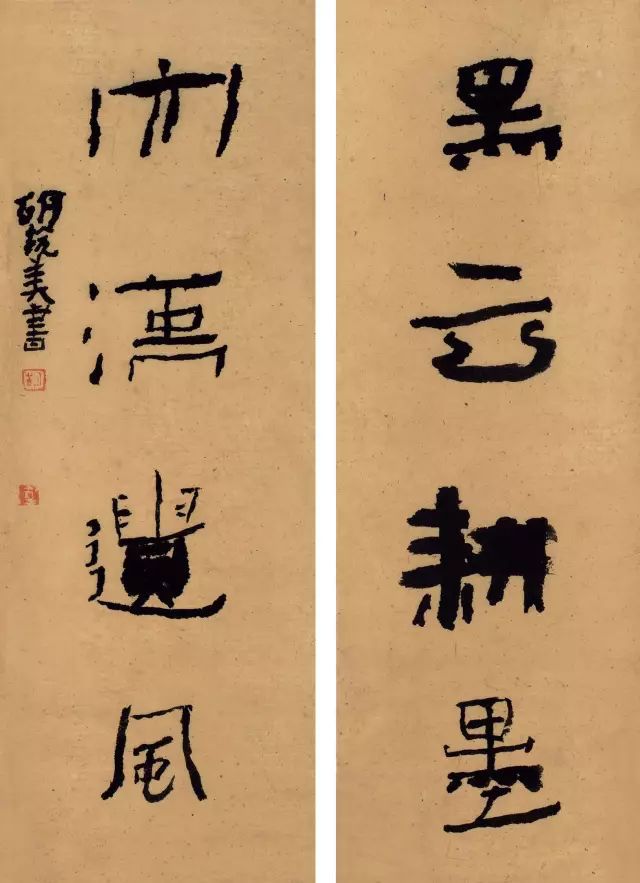 黑云耕墨
亦漢遺風
胡抗美書